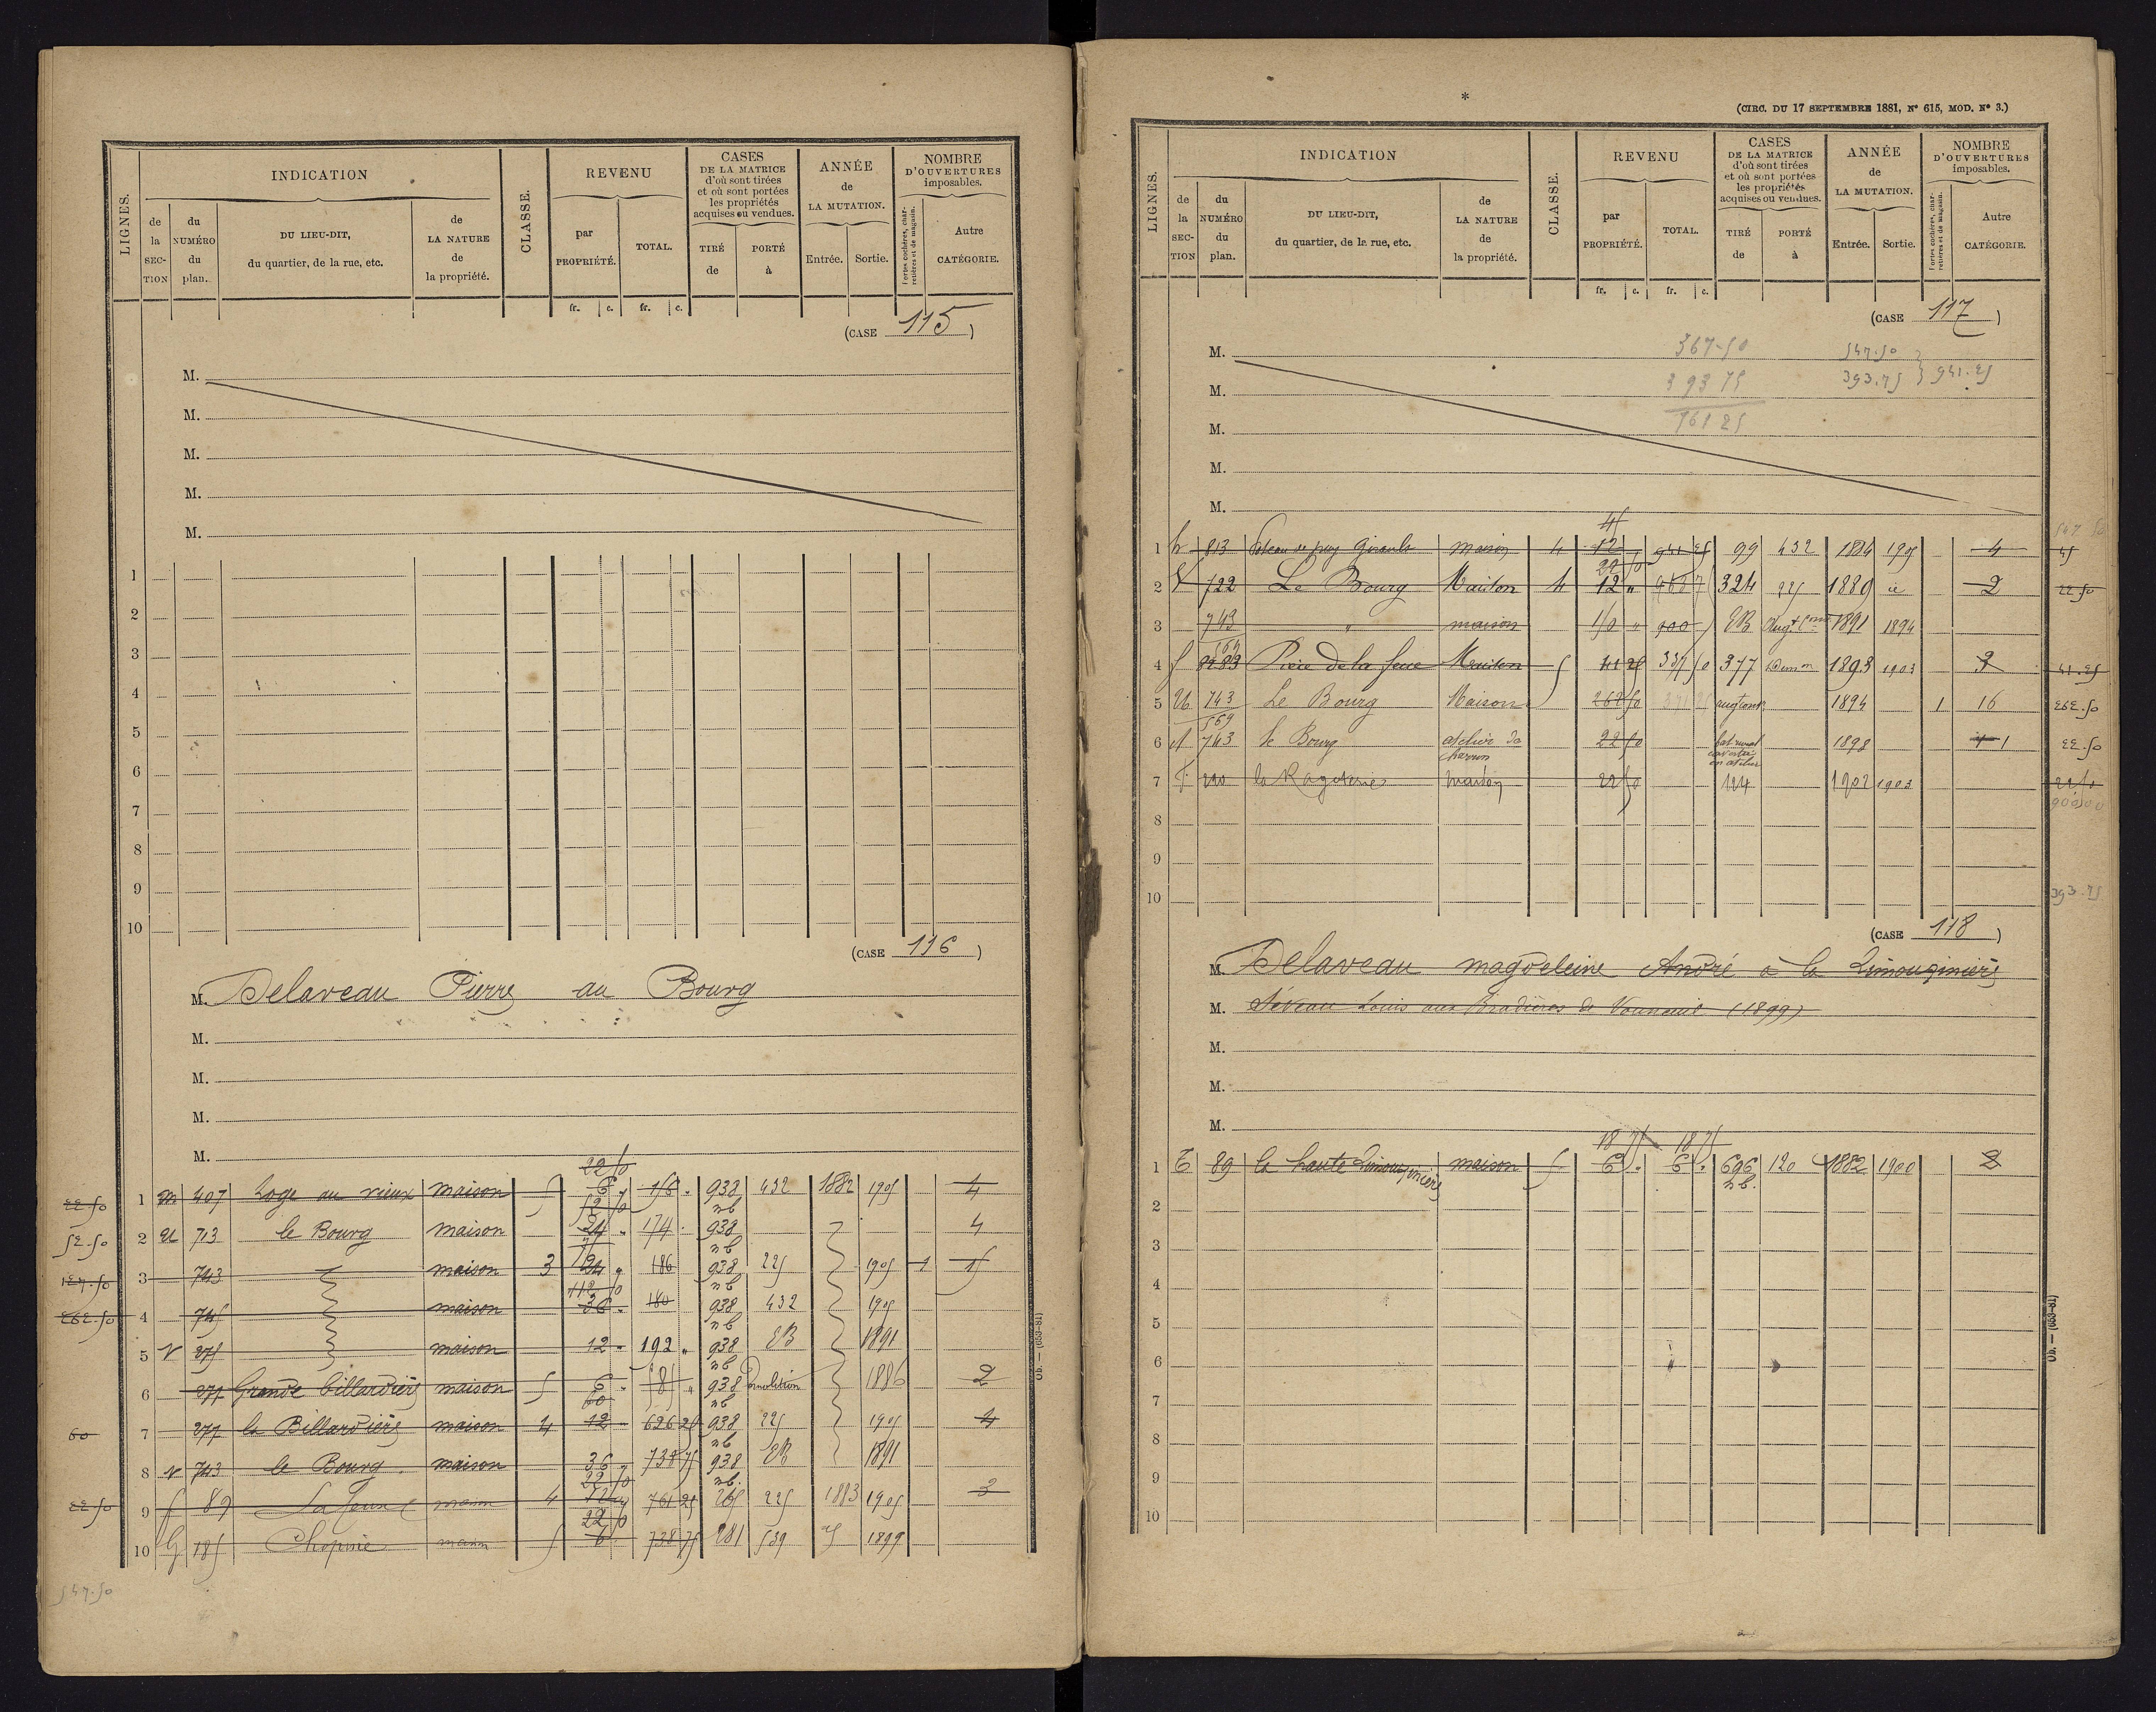 LIGNES.
INDICATION
de la SECTION
du NUMÉRO du plan.
DU LIEU-DIT, du quartier, de la rue, etc.
de LA NATURE de la propriété.
CLASSE.
REVENU
par PROPRIÉTÉ.
TOTAL.
CASES DE LA MATRICE d'où sont tirées et où sont portées les propriétés acquises ou vendues.
TIRÉ de
PORTÉ à
ANNÉE de LA MUTATION.
Entrée.
Sortie.
NOMBRE D'OUVERTURES imposables.
Portes cochères, charretières et de magasin.
Autre CATÉGORIE.
fr. c. fr. c.
(CASE 115)
M.
M.
M.
M.
M.
1
2
3
4
5
6
7
8
9
10
(CASE 116)
M. Delaveau Pierre au Bourg
M.
M.
M.
M.
22 50
1 m 407 Loge au vieux maison 5 6 " 938 432 1882 1905 4
52 50
2 U 713 le Bourg maison 24 " 174 . 938 4
3 743 maison 3 24 " 186 938 225 1905 1 15
112 50
4 745 maison 36 " 180 938 432 1905
5 V 275 maison 12 " 192 " 938 EB 1891
6 271 Grande billardière maison 5 6 " 938 Démolition 1886 2
60
7 277 la Billardière maison 4 12 626 25 938 225 1905 4
8 V 743 le Bourg maison 36 738 75 938 EB 1891
22 50
9 f 89 maison 4 12 761 25 265 225 1883 1905 3
22 50
10 G 185 Chopine maison 5 6 738 75 281 539 1899
547.50
(CIRC. DU 17 SEPTEMBRE 1881, N° 615, MOD. N° 3.)
LIGNES.
INDICATION
de la SECTION
du NUMÉRO du plan.
DU LIEU-DIT, du quartier, de la rue, etc.
de LA NATURE de la propriété.
CLASSE.
REVENU
par PROPRIÉTÉ.
TOTAL.
CASES DE LA MATRICE d'où sont tirées et où sont portées les propriétés acquises ou vendues.
TIRÉ de
PORTÉ à
ANNÉE de LA MUTATION.
Entrée.
Sortie.
NOMBRE D'OUVERTURES imposables.
Portes cochères, charretières et de magasin.
Autre CATÉGORIE.
fr. c. fr. c.
(CASE 117)
M. 367-50 547.50
M. 393 75 393.75 941.25
M. 761 25
M.
M.
45
1 h 813 maison 4 12 941 25 99 432 1884 1905 4
22 50
2 V 722 Le Bourg Maison 4 12 " 324 225 1889 2
3 743 " maison 150 " 900 EB 1891 1894
4 f Maison 5 41 25 337 50 377 1893 1903 2
5 U 743 Le Bourg Maison 262 50 1894 1 16
569
6 743 le Bourg atelier de charron 22 50 bat rural converti en atelier 1898 1
7 220 maison 22 50 124 1902 1903
8
9
10
393.75
(CASE 118)
M. Delaveau magdeleine André à la Limouginière
M. Louis aux Bradières de Vouneuil (1899)
M.
M.
M.
18 75 18 75
1 E 89 la haute Limouginière maison 5 6 " 6 " 696 120 1882 1900 2
nb.
2
3
4
5
6
7
8
9
10